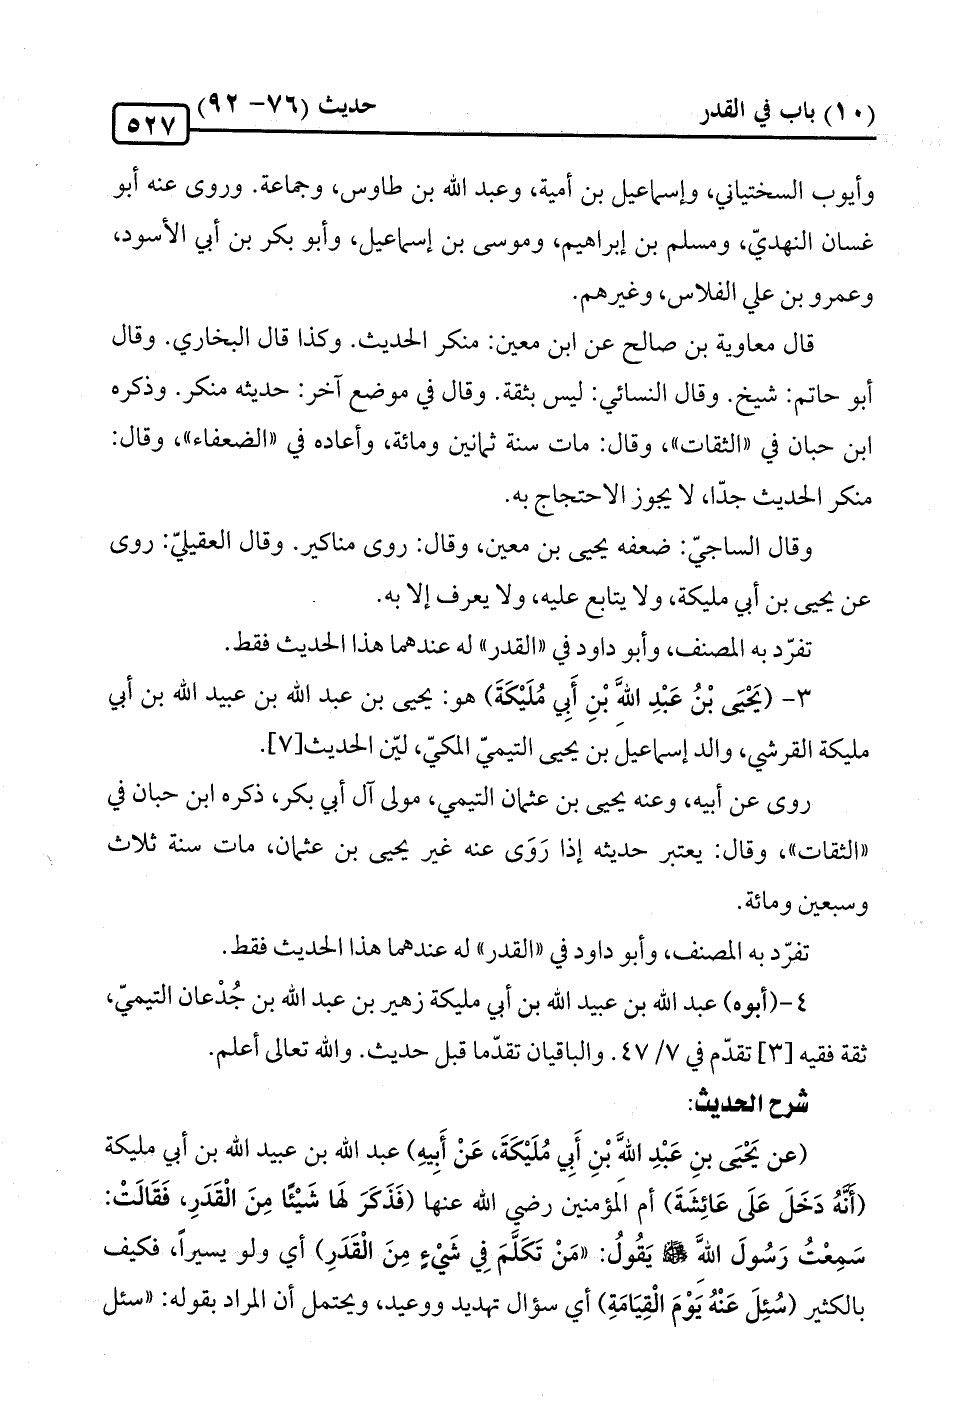 (١٠) باب في القدر
حديث (٧٦- ٩٢)
٥٢٧
وأيوب السختياني، وإسماعيل بن أمية، وعبد الله بن طاوس، وجماعة. وروى عنه أبو
غسان النهديّ، ومسلم بن إبراهيم، وموسى بن إسماعيل، وأبو بكر بن أبي الأسود،
وعمرو بن علي الفلاس، وغيرهم.
قال معاوية بن صالح عن ابن معين: منكر الحديث. وكذا قال البخاري. وقال
أبو حاتم: شيخ. وقال النسائي: ليس بثقة. وقال في موضع آخر: حديثه منكر. وذكره
ابن حبان في «الثقات»، وقال: مات سنة ثمانين ومائة، وأعاده في «الضعفاء»، وقال:
منكر الحديث جدّا، لا يجوز الاحتجاج به.
وقال الساجيّ: ضعفه يحيى بن معين، وقال: روى مناكير. وقال العقيليّ: روى
عن يحيى بن أبي مليكة، ولا يتابع عليه، ولا يعرف إلا به.
تفرّد به المصنف، وأبو داود في «القدر» له عندهما هذا الحديث فقط.
٣- (يَحْيَى بْنُ عَبْدِ اللهَّ بْنِ أَبِي مُلَيْكَةَ) هو: يحيى بن عبد الله بن عبيد الله بن أبي
مليكة القرشي، والد إسماعيل بن يحيى التيميّ المكيّ، ليّن الحديث[٧].
روى عن أبيه، وعنه يحيى بن عثمان التيمي، مولى آل أبي بكر، ذكره ابن حبان في
«الثقات»، وقال: يعتبر حديثه إذا رَوَى عنه غير يحيى بن عثمان، مات سنة ثلاث
وسبعين ومائة.
تفرّد به المصنف، وأبو داود في «القدر» له عندهما هذا الحديث فقط.
٤-(أبوه) عبد الله بن عبيد الله بن أبي مليكة زهير بن عبد الله بن جُدْعان التيميّ،
ثقة فقيه [٣] تقدّم في ٧/ ٤٧. والباقيان تقدّما قبل حديث. والله تعالى أعلم.
شرح الحديث:
(عن يَحْيَى بنِ عَبْدِ اللهَّ بْنِ أَبِي مُلَيْكَةَ، عَنْ أَبِيهِ) عبد الله بن عبيد الله بن أبي مليكة
(أَنَّهُ دَخَلَ عَلَى عَائِشَةَ) أم المؤمنين رضي الله عنها (فَذَكَرَ لَهَا شَيْئًا مِنَ الْقَدَرِ، فَقَالَتْ:
سَمِعْتُ رَسُولَ اللهَّ ﷺ يَقُولُ: «مَنْ تَكَلَّمَ فِي شَيْءٍ مِنَ الْقَدَرِ) أي ولو يسيراً، فكيف
بالكثير (سُئِلَ عَنْهُ يَوْمَ الْقِيَامَةِ) أي سؤال تهديد ووعيد، ويحتمل أن المراد بقوله: «سئل